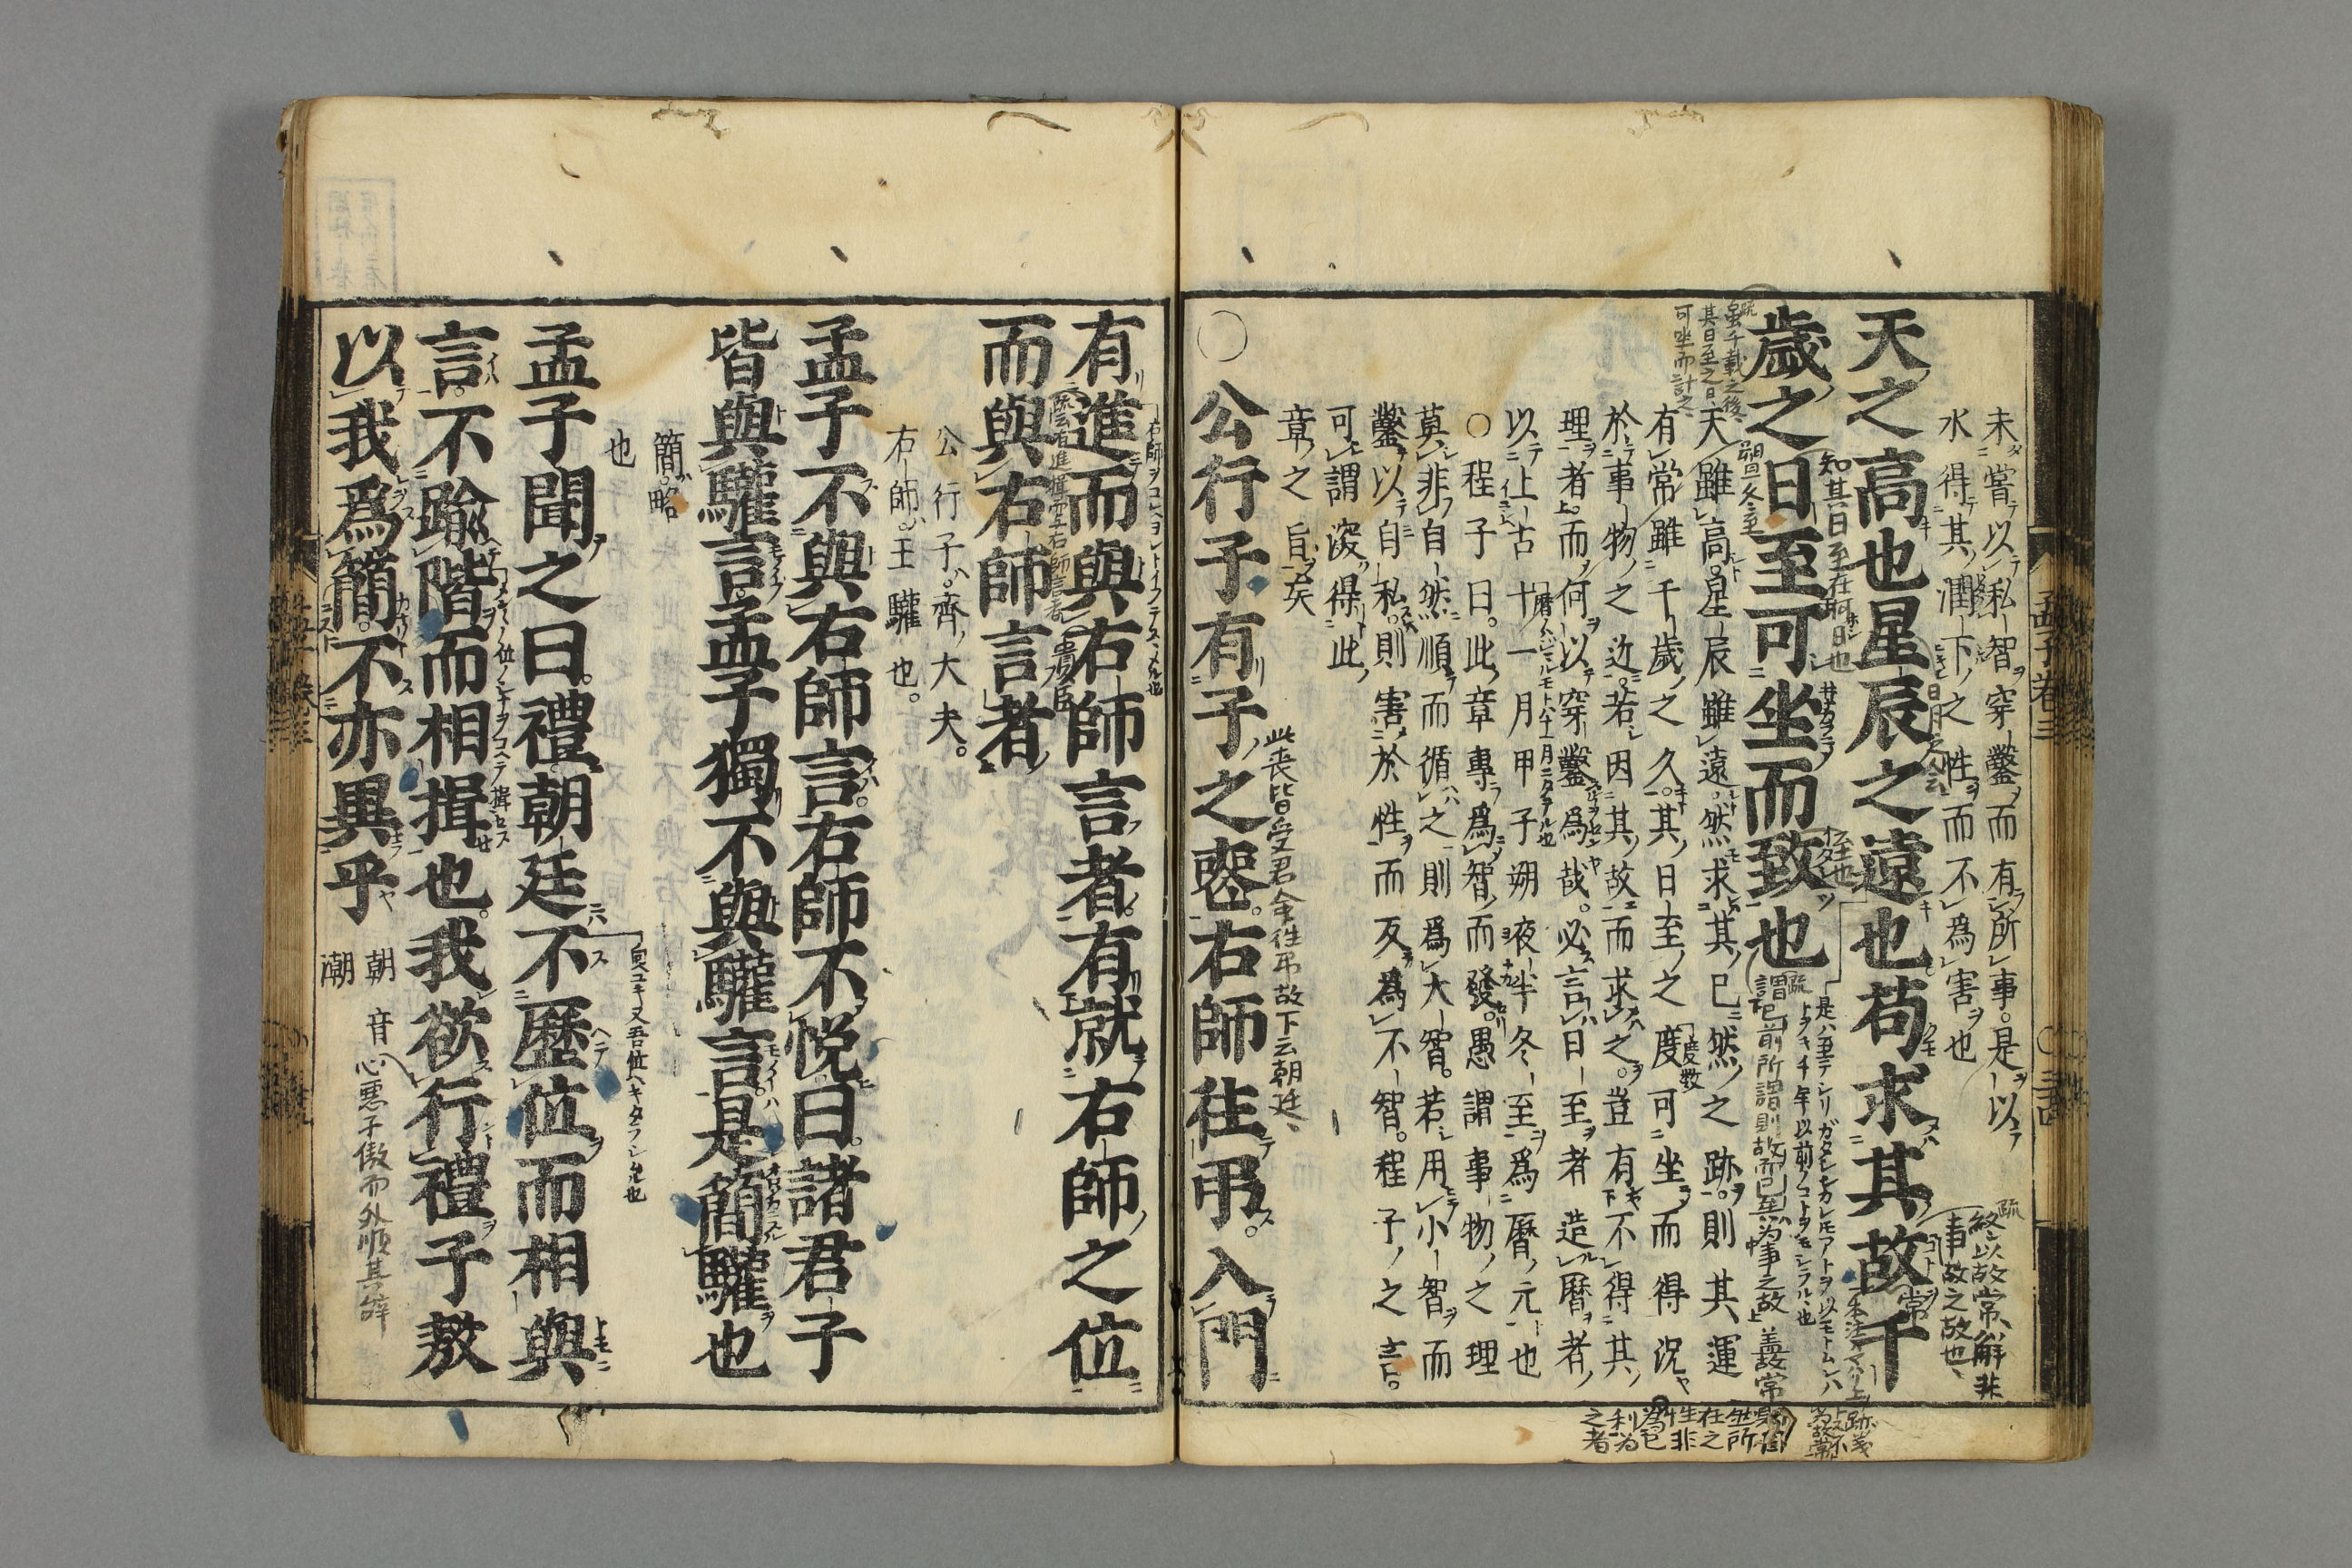 未嘗以私智穿鑿而有所事是以
水得其潤下之性而不爲害也
天之高也星辰之遠也苟求其故千
歲之日至可坐而致也
天雖高星辰雖遠然求其已然之跡則其運
有常雖千歲之久其日至之度可坐而得況
於事物之近若因其故而求之豈有不得其
理者而何以穿鑿爲哉必言日至者造曆者
以上古十一月甲子朔夜半冬至爲曆元也
○程子曰此章專爲智而發愚謂事物之理
莫非自然順而循之則爲大智若用小智而
鑿以自私則害於性而反爲不智程子之言
可謂深得此
章之旨矣
○公行子有子之喪右師往弔入門
有進而與右師言者有就右師之位
而與右師言者
公行子齊大夫
右師王驩也
孟子不與右師言右師不悅曰諸君子
皆與驩言孟子獨不與驩言是簡驩也
簡略
也
孟子聞之曰禮朝廷不歷位而相與
言不踰階而相揖也我欲行禮子敖
以我爲簡不亦異乎
朝音
潮
孟子卷三
此喪皆受君命往弔故下云朝廷
知其日至在何日也
心惡子傲而外順其辭
雖千載之後
其日至之日
可坐而計之